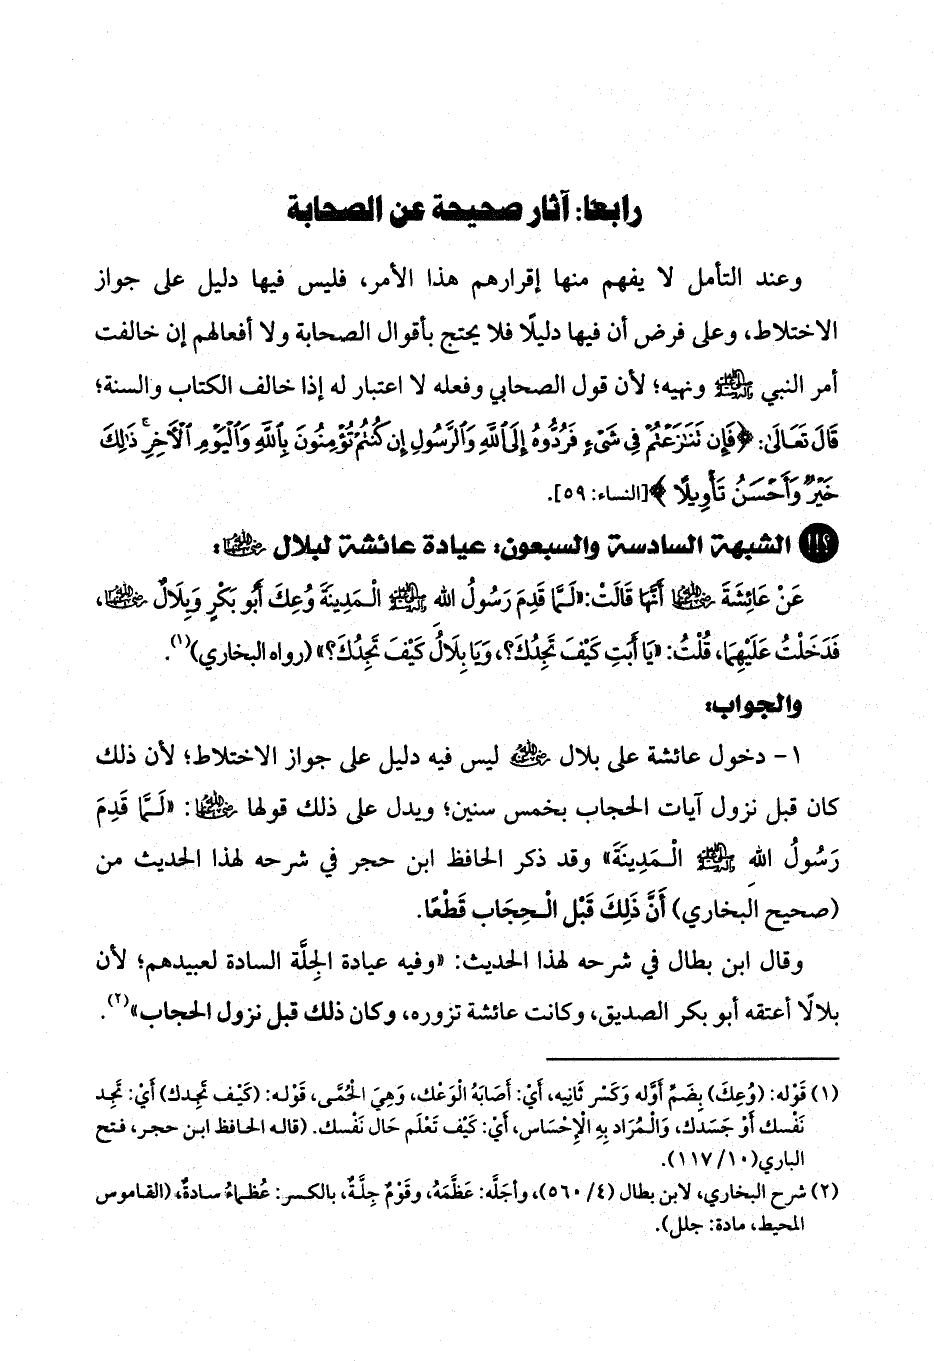 رابعا: آثار صحيحة عن الصحابة
وعند التأمل لا يفهم منها إقرارهم هذا الأمر، فليس فيها دليل على جواز
الاختلاط، وعلى فرض أن فيها دليلًا فلا يحتج بأقوال الصحابة ولا أفعالهم إن خالفت
أمر النبي ﷺ ونهيه؛ لأن قول الصحابي وفعله لا اعتبار له إذا خالف الكتاب والسنة؛
قَالَ تَعَالَىٰ: ﴿فَإِن تَنَٰزَعْتُمْ فِي شَيْءٍ فَرُدُّوهُ إِلَى ٱللَّهِ وَٱلرَّسُولِ إِن كُنتُمْ تُؤْمِنُونَ بِٱللَّهِ وَٱلْيَوْمِ ٱلْأَخِرِ ۚ ذَٰلِكَ
خَيْرٌ وَأَحْسَنُ تَأْوِيلًا﴾ [النساء: ٥٩].
الشبهة السادسة والسبعون: عيادة عائشة لبلال رضي الله عنهما:
عَنْ عَائِشَةَ رضي الله عنها أَنَّهَا قَالَتْ: «لَـمَّا قَدِمَ رَسُولُ الله ﷺ الْـمَدِينَةَ وُعِكَ أَبُو بَكْرٍ وَبِلَالٌ رضي الله عنهما،
فَدَخَلْتُ عَلَيْهِمَا، قُلْتُ: «يَا أَبَتِ كَيْفَ تَجِدُكَ؟، وَيَا بِلَالُ كَيْفَ تَجِدُكَ؟» (رواه البخاري)(١).
والجواب:
١- دخول عائشة على بلال رضي الله عنهما ليس فيه دليل على جواز الاختلاط؛ لأن ذلك
كان قبل نزول آيات الحجاب بخمس سنين؛ ويدل على ذلك قولها رضي الله عنها: «لَـمَّا قَدِمَ
رَسُولُ الله ﷺ الْـمَدِينَةَ» وقد ذكر الحافظ ابن حجر في شرحه لهذا الحديث من
(صحيح البخاري) أَنَّ ذَلِكَ قَبْل الْـحِجَاب قَطْعًا.
وقال ابن بطال في شرحه لهذا الحديث: «وفيه عيادة الجِلَّة السادة لعبيدهم؛ لأن
بلالًا أعتقه أبو بكر الصديق، وكانت عائشة تزوره، وكان ذلك قبل نزول الحجاب»(٢).
(١) قَوْله: (وُعِكَ) بِضَمِّ أَوَّله وَكَسْر ثَانِيه، أَيْ: أَصَابَهُ الْوَعْك، وَهِيَ الْحُمَّى، قَوْله: (كَيْف تَجِدك) أَيْ: تَجِد
نَفْسك أَوْ جَسَدك، وَالْـمُرَاد بِهِ الْإِحْسَاس، أَيْ: كَيْف تَعْلَم حَال نَفْسك. (قاله الحافظ ابن حجر، فتح
الباري(١٠/ ١١٧).
(٢) شرح البخاري، لابن بطال (٤/ ٥٦٠)، وأجَلَّه: عَظَّمَهُ، وقَوْمٌ جِلَّةٌ، بالكسر: عُظَماءُ سادةٌ، (القاموس
المحيط، مادة: جلل).